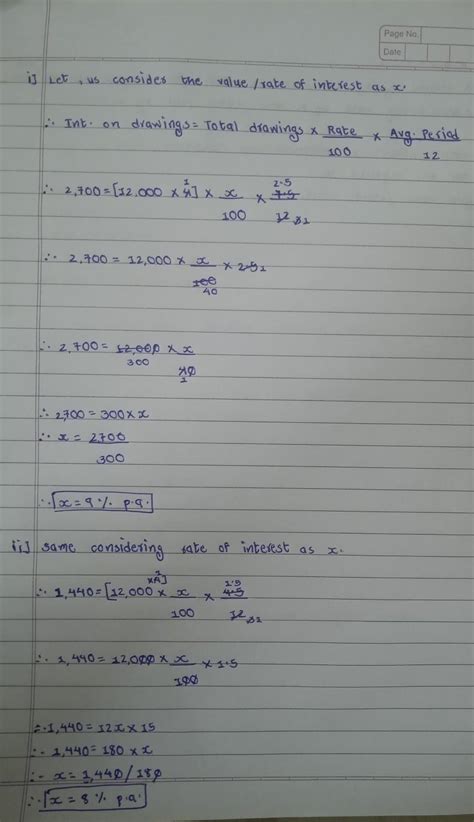 Page No.
Date
i] Let, us consider the value/rate of interest as x.
∴ Int. on drawings = Total drawings × Rate/100 × Avg. Period/12
∴ 2,700 = [12,000 × 4 1] × x/100 × 7.5 2.5/12
∴ 2,700 = 12,000 × x/100 40 × 2.5 1
∴ 2,700 = 12,000 300 × x/40 1
∴ 2,700 = 300 × x
∴ x = 2,700/300
∴ x = 9 % p.a.
ii] Same considering rate of interest as x.
∴ 1,440 = [12,000 × 4] × x/100 × 4.5 1.5/12
∴ 1,440 = 12,000 × x/100 × 1.5
∴ 1,440 = 12x × 15
∴ 1,440 = 180 × x
∴ x = 1,440/180
∴ x = 8 % p.a.